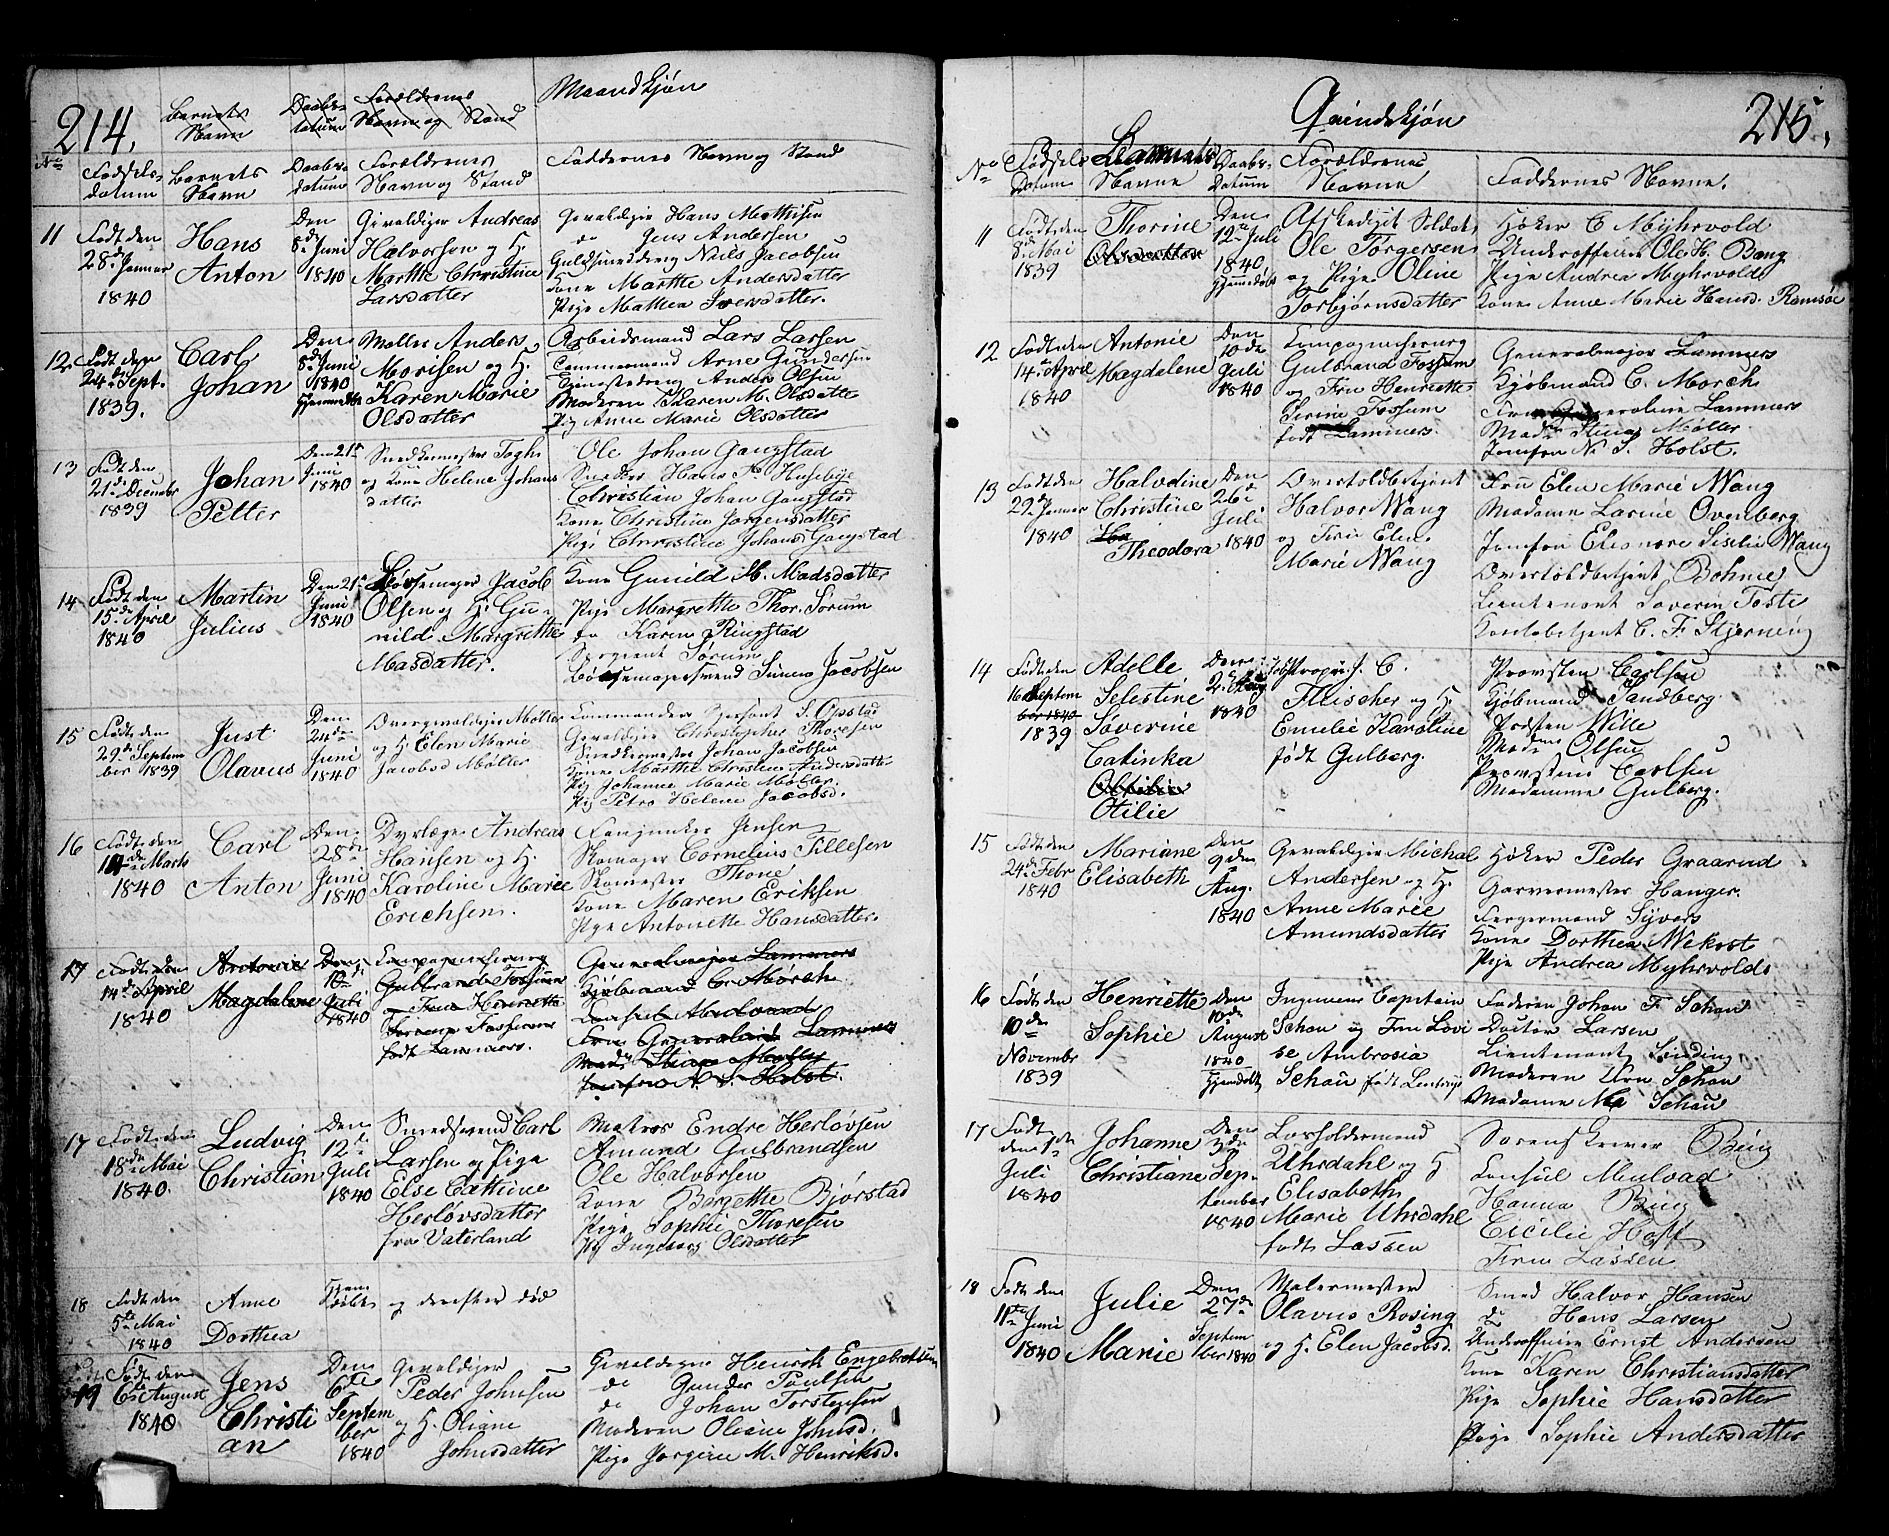 214.
Barnets
Navn
Daabs-
datum
Forældrenes
Navn og Stand
Mandkjøn
No
Fødsels-
datum
Barnets
Navn
Daabs-
datum
Forældrenes
Navn og Stand
Faddernes Navn og Stand
11
Født den
28de Januar
1840
Hans
Anton
Den
8de Juni
1840
Gevaldiger Andreas
Halvorsen og H.
Marthe Christine
Larsdatter
Gevaldiger Hans Mathisen
do Jens Andersen
Guldsmeddreng Niels Jacobsen
Kone Marthe Andersdatter
Pige Mathea Iversdatter.
12
Født den
24de Sept.
1839.
Carl
Johan
Den
8de Juni
1840
Hjemmedøbt
Møller Anders
Morisen og H.
Karen Marie
Olsdatter
Arbeidsmand Lars Larsen
Tømmermand Arne Gundersen
Anders Olsen
Moderen Karen M. Olsdatte
Pig Anne Marie Olsdatter
13
Født den
21de Decembr
1839
Johan
Petter
Den 21de
Juni
1840
Snedkermester
og Kone Helene Johans
datter
Ole Johan Gangstad
Snedker Hans Husebye
Christian Johan Gangstad
Kone Christine Jørgensdatter
Pige Christine Johansd Gangstad
14
Født den
15de April
1840
Martin
Julius
Den 21de
Juni
1840
Børsemager Jacob
Olsen og H. Gu-
nild Margrethe
Masdatter.
Kone Gunild M. Madsdatter
Pige Margrethe Thor. Sørum
do Karen Ringstad
Sergeant Sørum
Børsemagersvend Simen Jacobsen
15
Født den
29de Septem
ber 1839
Just
Olavus
Den
24de
Juni
1840
Overgevaldiger Møller
og H. Elen Marie
Jacobsd Møller
Commandeer Sersjant S. Opstad
Gevaldiger Christopher Thoresen
Snedkermester Johan Jacobsen
Kone Marthe Christine Andersdatte
Pig Johanne Marie Møller
Pig Petra Helene Jacobsd.
16
Født den
14de Marts
1840
Carl
Anton
Den
28de
Juni
1840
Dyrlæge Andreas
Hansen og H.
Karoline Marie
Erichsen.
Fanjunker Jensen
Skomager Cornelius Tillesen
Skomester Thone
Kone Maren Eriksen
Pige Antonette Hansdatter.
17
Født den
14de April
1840
Antonie
Magdalene
Den
10de
Juli
1840
Compagnieserurg
Gulbrand Fossum
og Frue Henriette
Serine Fossum
født Lammers.
Generalmajor Lammers
Kjøbmand C. Mörch
Consul Mulvaad
Frue Generalinde Lammers
Mad. Stina Møller
Jomfru N. S. Holst.
17
Født den
18de Mai
1840.
Ludvig
Christian
Den
12te
Juli
1840
Smedsvend Carl
Larsen og Pige
Else Cattrine
Herløvsdatter
fra Vaterland
Matros Endre Herløvsen
Amund Gulbrandsen
Ole Halvorsen
Kone Børgette Bjørstad
Pige Sophie Thoresen
Pig Ingeborg Olsdatter
18
Født den
5te Mai
1840
Anne
Dorthea
Hjem
døbt
og derefter død
19
Født den
6te August
1840
Jens
Christi
an
Den
6te
Septem
ber
1840
Gevaldiger
Peder Johnsen
og H. Oliane
Johnsdatter
Gevaldigne Henrik Engebretsen
do Gunder Poulsen
do Johan Torstensen
Moderen Oliane Johnsd.
Pige Jørgine M. Henriksd.
Qvindekjøn
215.
No
Fødsels
Datum
Barnets
Navne
Daabs-
Datum
Forældrenes
Navne
Faddernes Navne.
11
Født den
8de Mai
1839
Thorine
Olsdatter
Den
12te Juli
1840
Hjemedøbt
Afskediget Soldat
Ole Torgersen
og Pige Oline
Torbjørnsdatter
Høker C Myhrvold
Underofficer Ole H. Bang
Pige Andrea Myhrvold
Kone Anne Marie Hansd. Ramsøe
12
Født den
14de April
1840
Antonie
Magdalene
Den
10de
Juli
1840
Compagnieserurg
Gulbrand Fossum
og Frue Henriette
Serine Fossum
født Lammers.
Generalmajor Lammers
Kjøbmand C. Morch
Frue Generalinde Lammers
Mad. Stina Møller
Jomfru N. S. Holst.
13
Født den
29de Januar
1840
Halvdine
Christine
Theodora
Den
26de
Juli
1840
Overtoldbetjent
Halvor Wang
og Frue Elen
Marie Wang
Frue Elen Marie Wang
Madame Larine Ovenberg
Jomfru Elionore Sisilie Wang
Overtoldbetjent Bøhme
Lieutenant Soverin Toste
Kontobetjent C. F. Stjerning
14
Født den
16 Septem
ber 1840
1839
Adelle
Selestine
Søverine
Catinka
Otilie
Den
2den Aug.
1840
C.
Fleischer og H.
Emelie Karoline
født Gulberg.
Provsten Carlsen
Kjøbmand Sandberg.
Presten Wille
Madm Olsen
Provstinde Carlsen
Madamme Gulberg.
15
Født den
24de Febr
1840
Mariane
Elisabeth
Den
9de
Aug.
1840
Gevaldiger Michal
Andersen og H.
Anne Marie
Amundsdatter
Høker Peder Graarud
Garvermester Hanger.
Fergemand Syvers
Kone Dorthea Wekset
Pige Andrea Myhrvolds
16
Født den
10de
Novembr
1839
Henriette
Sophie
Den
10de
August
1840
Hjemdøbt
Ingenieur Capitain
Schou og Frue Lovi
se Ambrosia
Schou født Lentnye
Faderen Johan F. Schou
Doctor Larsen
Lieutenant Sinding
Moderen Fru Schou
Madame N Schou
17
Født
den 1ste
Juli
1840
Johanne
Christiane
Den
3de
Sep-
tember
1840
Uhrdahl og H
Elisabeth
Marie Uhrdahl
født Lassen
Sorenskriver Bing
Consul Mulvad
Hanna Bing
Cicilie Hoff
Frue Lassen
18
Født den
11te Juni
1840
Julie
Marie
Den
27de
Septem
ber 1840
Malermester
Olavus Rosing
og H. Elen Jacobsd.
Smed Halvor Hansen
do Hans Larsen
Underofficer Ernst Andersen
Kone Karen Christiansdatter
Pige Sophie Hansdatter
Pige Sophie Andersdatter